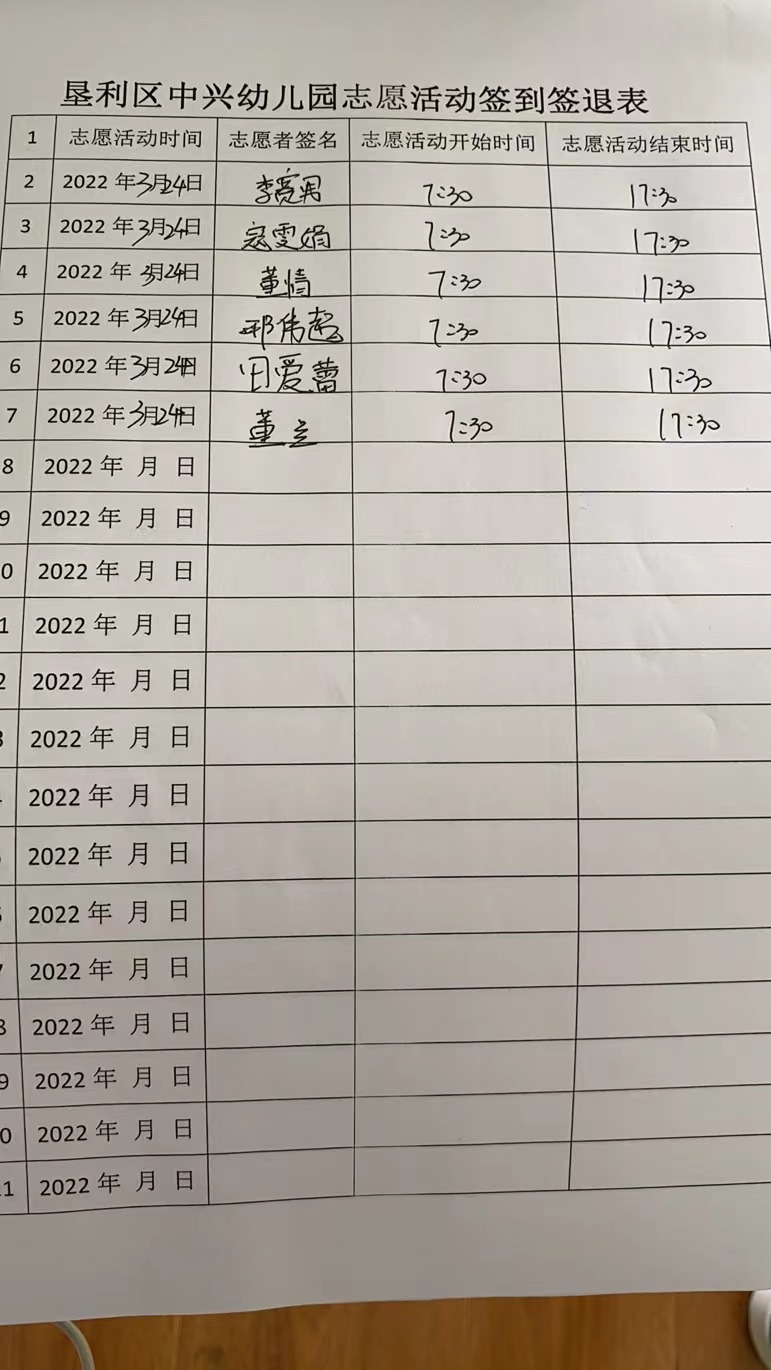 垦利区中兴幼儿园志愿活动签到签退表
1 志愿活动时间 志愿者签名 志愿活动开始时间 志愿活动结束时间
2 2022年3月24日 李亮男 7:30 17:30
3 2022年3月24日 寇雯娟 7:30 17:30
4 2022年3月24日 董倩 7:30 17:30
5 2022年3月24日 邢伟超 7:30 17:30
6 2022年3月24日 田爱蕾 7:30 17:30
7 2022年3月24日 董立 7:30 17:30
8 2022年 月 日
9 2022年 月 日
0 2022年 月 日
1 2022年 月 日
2 2022年 月 日
3 2022年 月 日
2022年 月 日
2022年 月 日
2022年 月 日
7 2022年 月 日
8 2022年 月 日
9 2022年 月 日
0 2022年 月 日
1 2022年 月 日